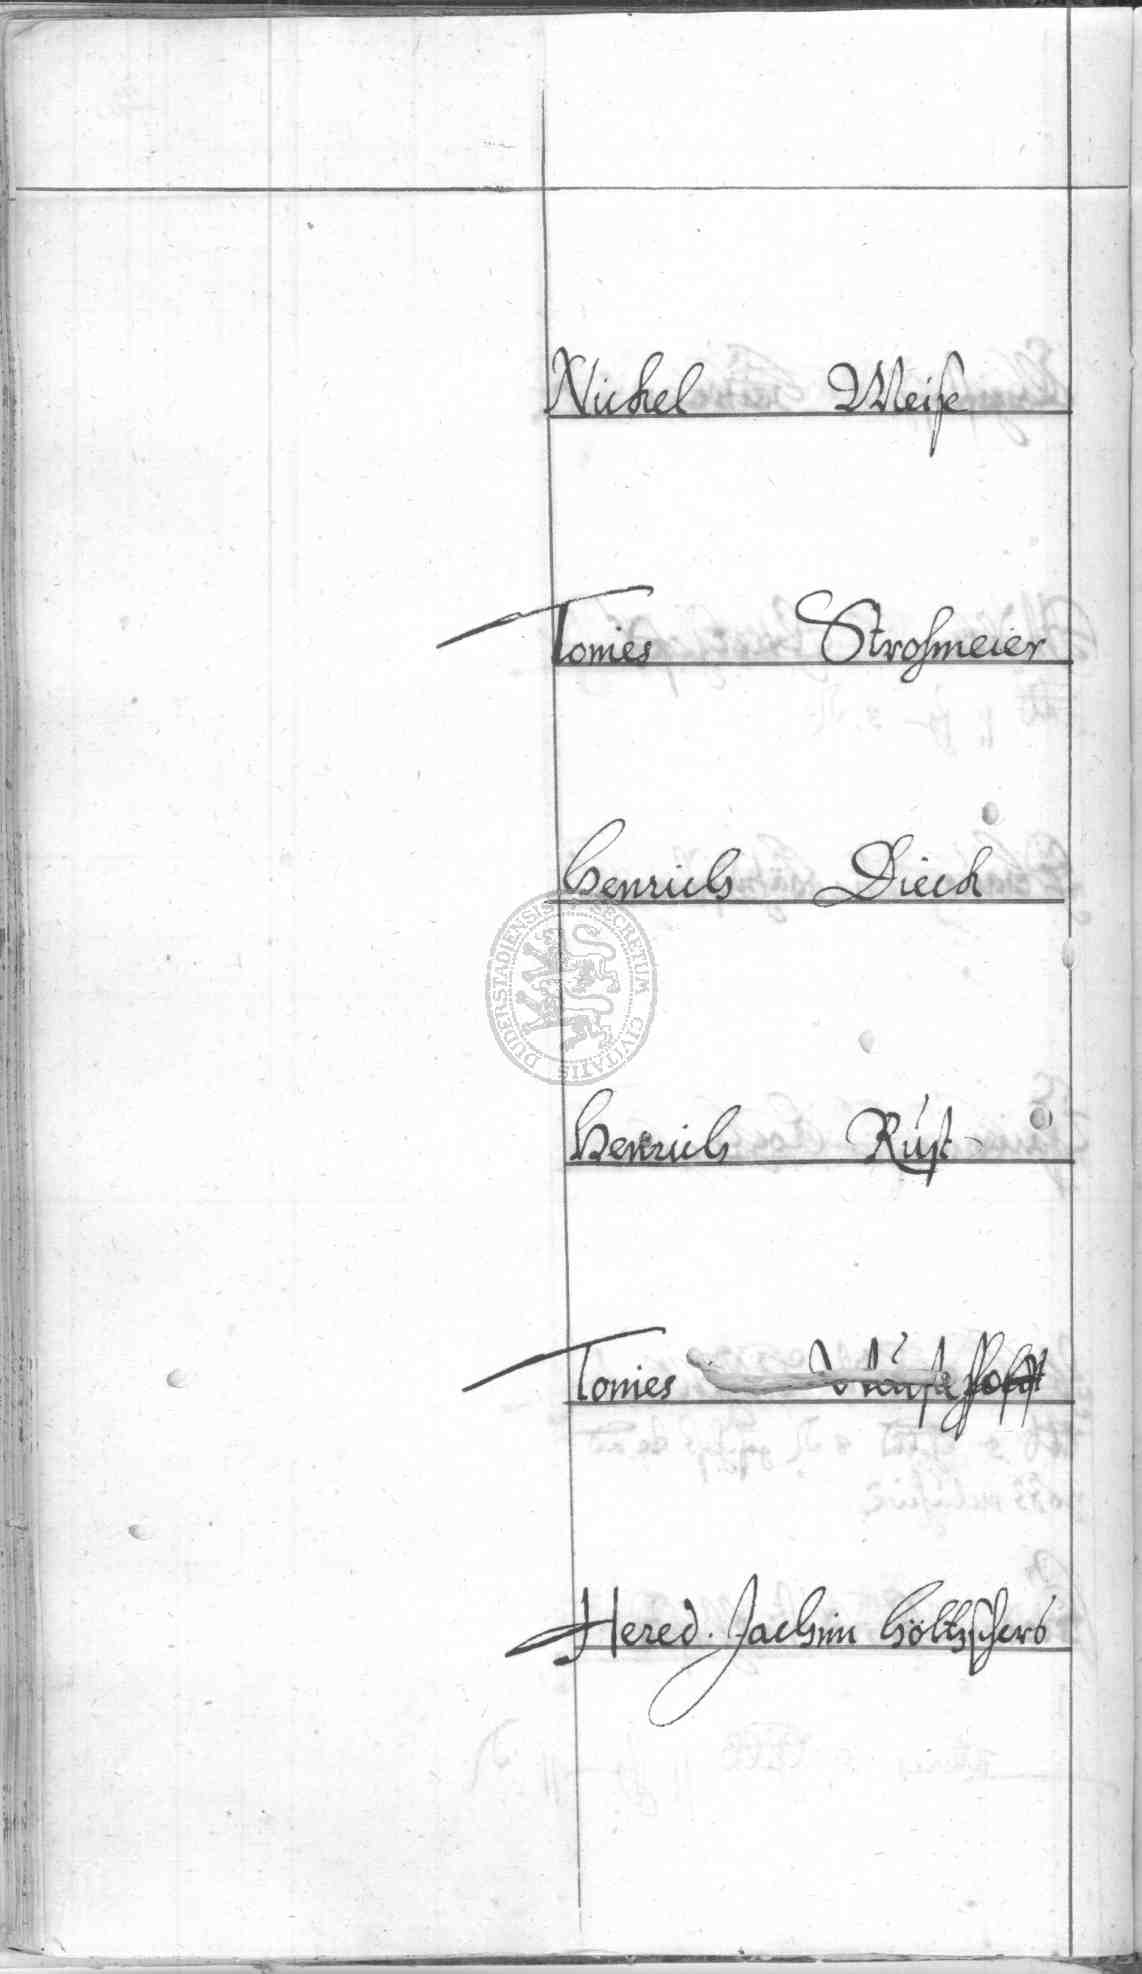 Nickel Weise
Tonies Strohmeier
Henrich Dieck
DUDERSTADIENSIS SECRETUM CIVITATIS
Henrich Rust
Tonies
Hered. Jachim Höltzschers